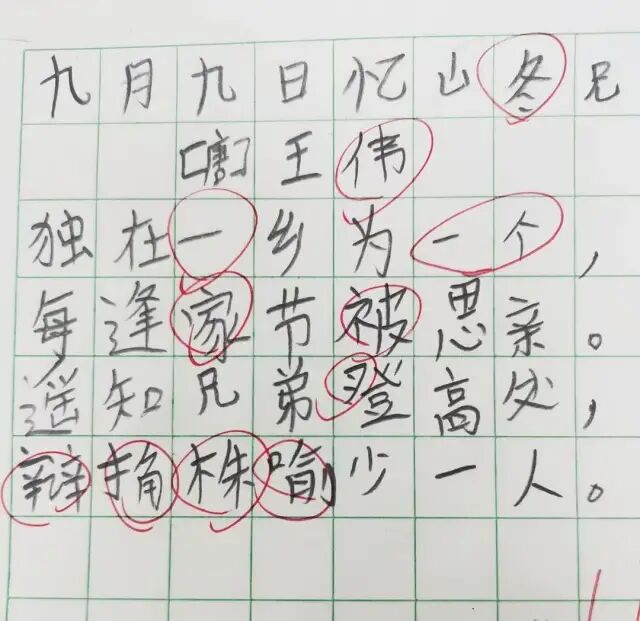 九月九日忆山冬兄
[唐]王伟
独在一乡为一个，
每逢家节被思亲。
遥知兄弟登高处，
辩捔株喻少一人。